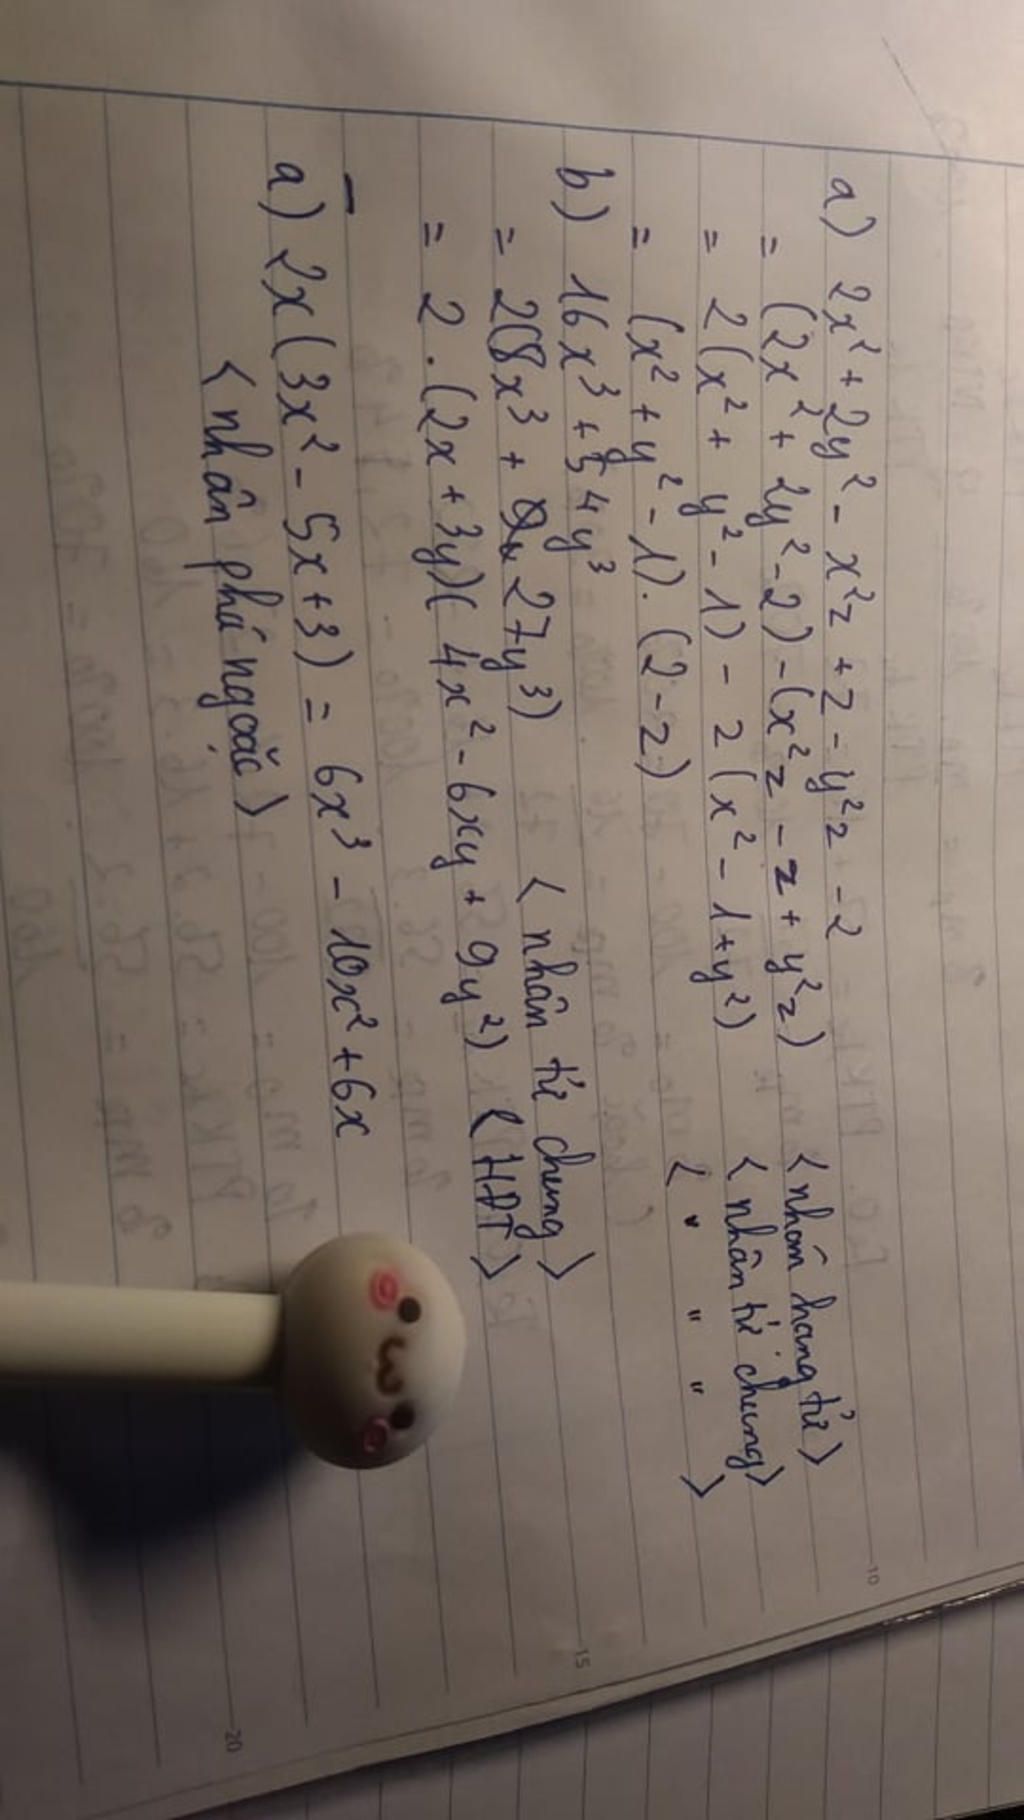 a) 2x² + 2y² - x²z + z - y²z - 2
= (2x² + 2y² - 2) - (x²z - z + y²z) < nhóm hạng tử >
= 2(x² + y² - 1) - z(x² - 1 + y²) < nhân tử chung >
= (x² + y² - 1). (2 - z) < " " " >
b) 16x³ + 54y³
= 2(8x³ + 27y³) < nhân tử chung >
= 2.(2x + 3y)(4x² - 6xy + 9y²) < HĐT >
a) 2x(3x² - 5x + 3) = 6x³ - 10x² + 6x
< nhân phá ngoặc >
10
15
20